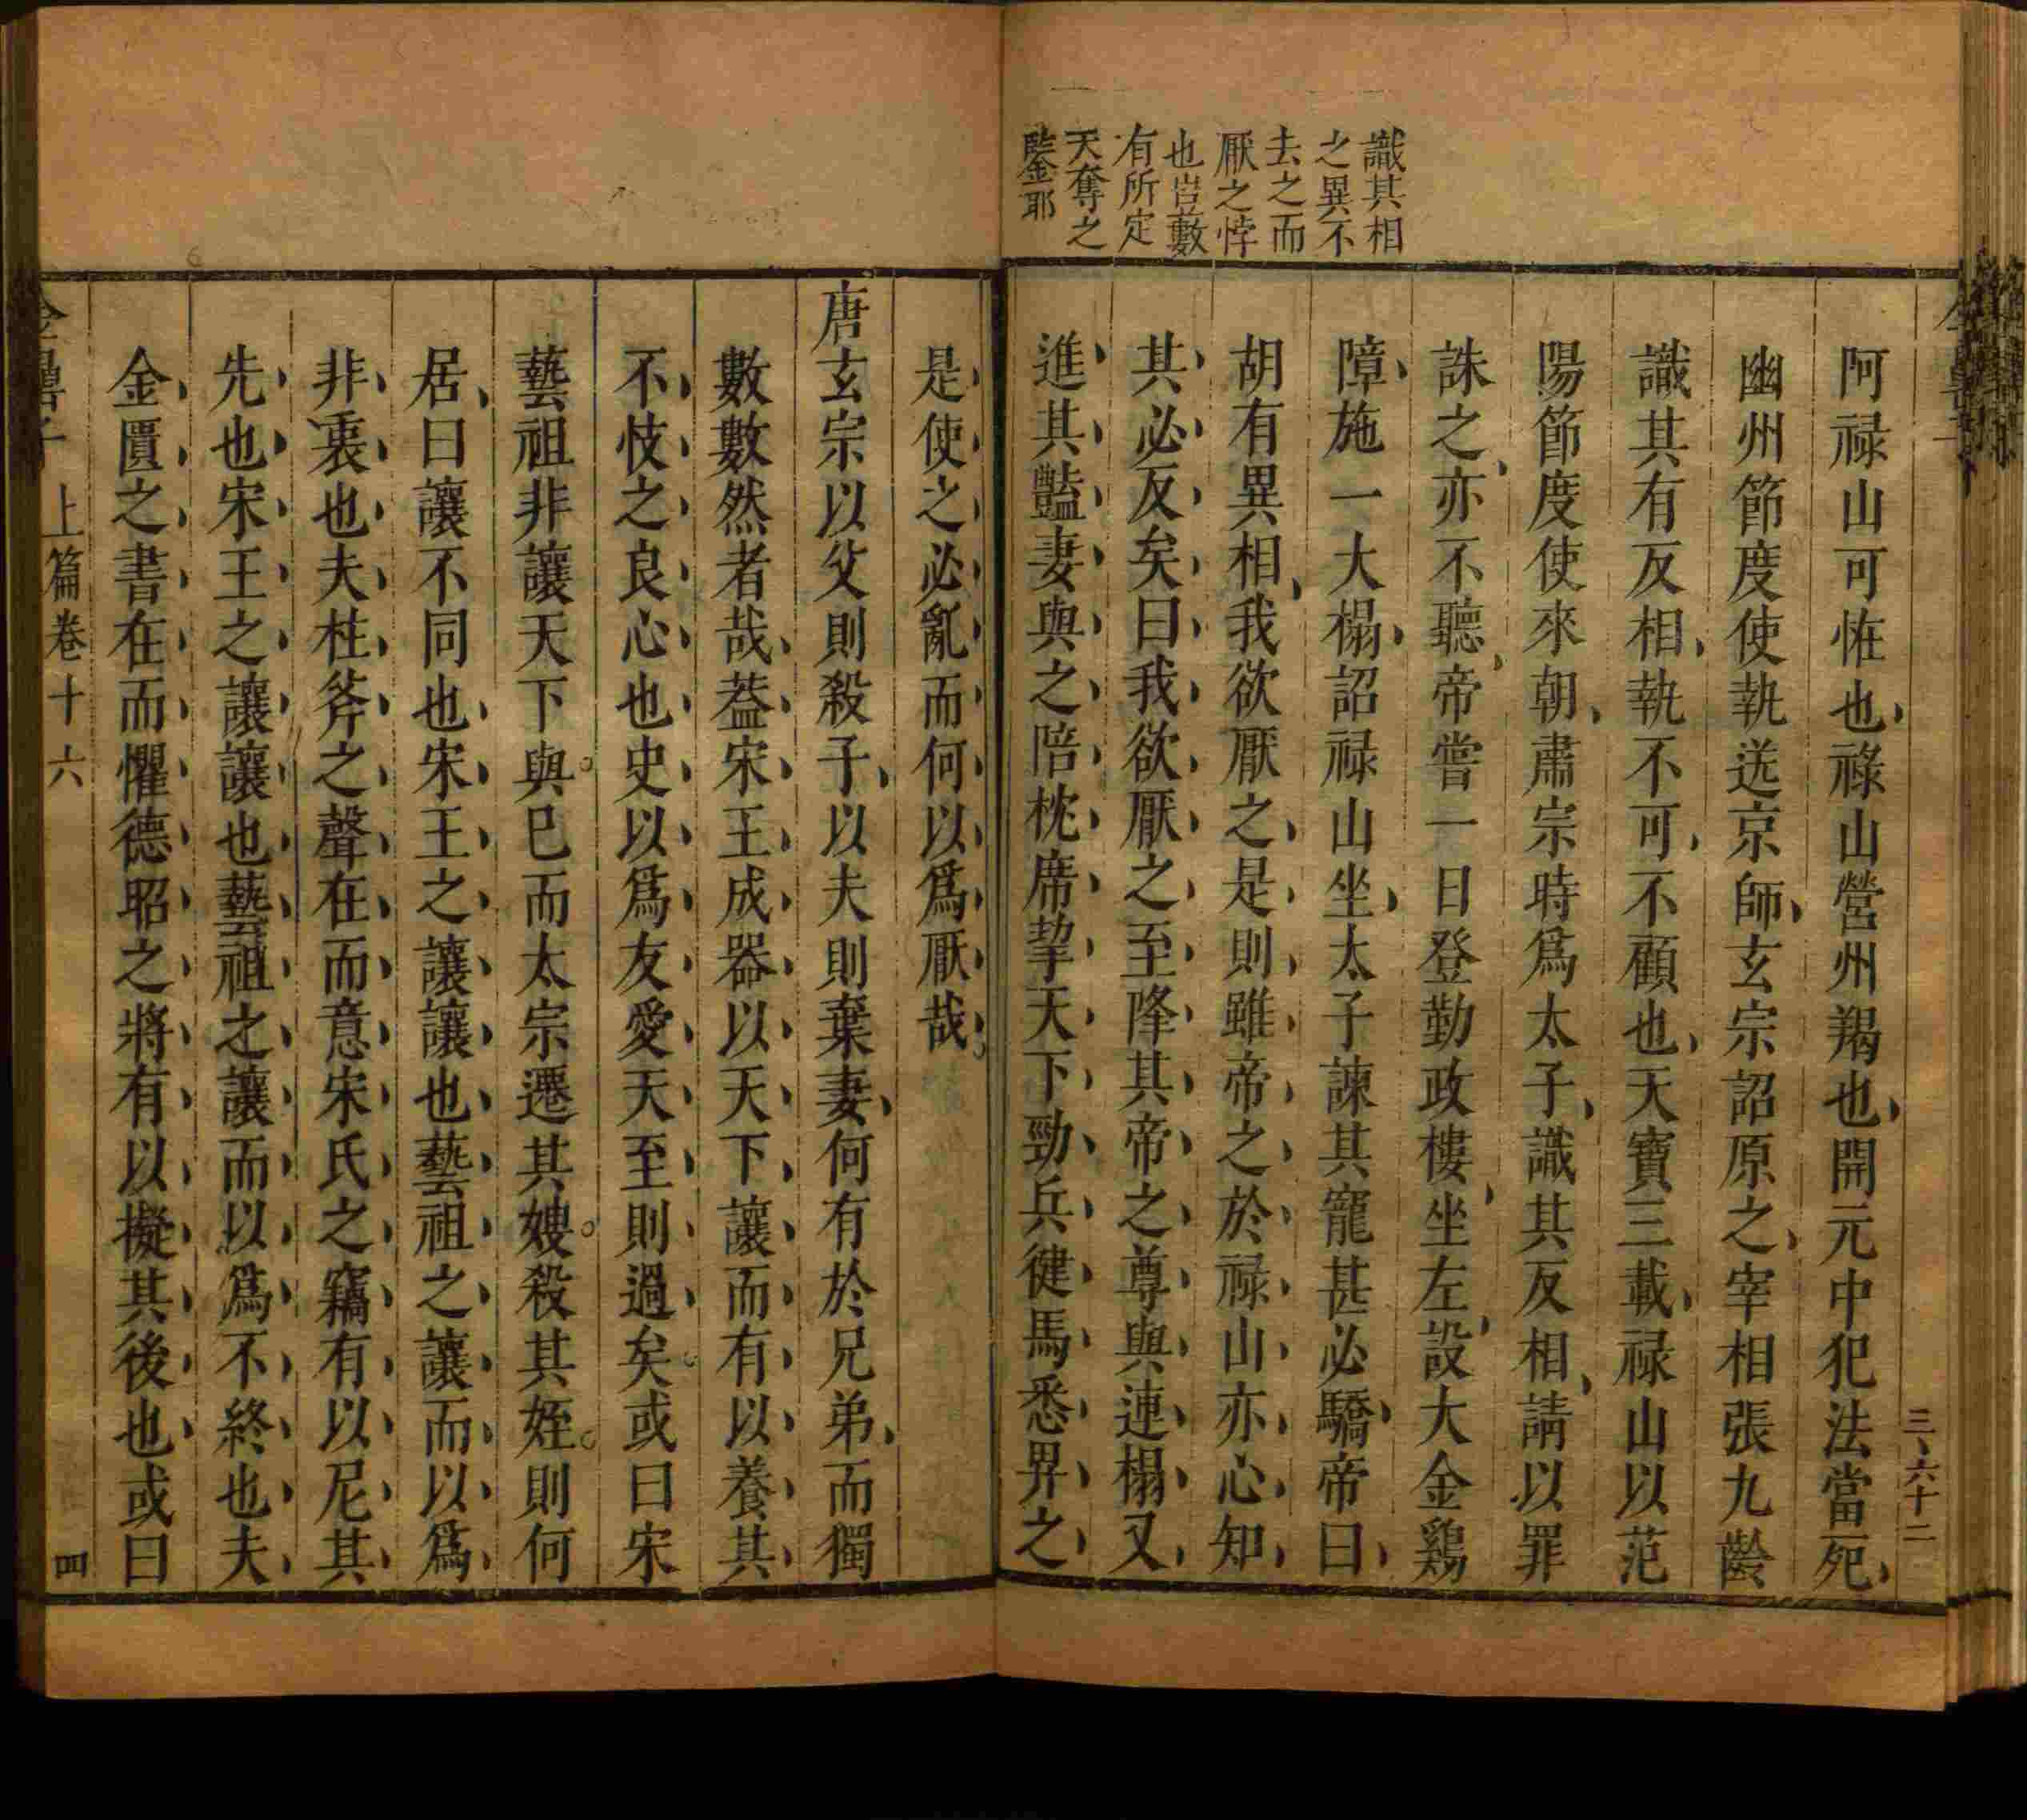 識其相
之異不
去之而
厭之悖
也豈數
有所定
天奪之
鑒耶
三、六十二
阿禄山可恠也祿山營州羯也開元中犯法當死
幽州節度使執送京師玄宗詔原之宰相張九齡
識其有反相執不可不顧也天寶三載禄山以范
陽節度使來朝肅宗時爲太子識其反相請以罪
誅之亦不聽帝嘗一日登勤政樓坐左設大金鷄
障施一大榻詔禄山坐太子諫其寵甚必驕帝曰
胡有異相我欲厭之是則雖帝之於禄山亦心知
其必反矣曰我欲厭之至降其帝之尊與連榻又
進其豔妻與之陪枕席挈天下勁兵健馬悉畀之
是使之必亂而何以爲厭哉
唐玄宗以父則殺子以夫則棄妻何有於兄弟而獨
數數然者哉葢宋王成器以天下讓而有以養其
不忮之良心也史以爲友愛天至則過矣或曰宋
藝祖非讓天下與巳而太宗遷其嫂殺其姪則何
居曰讓不同也宋王之讓讓也藝祖之讓而以爲
非褁也夫柱斧之聲在而意宋氏之竊有以尼其
先也宋王之讓讓也藝祖之讓而以爲不終也夫
金匱之書在而懼德昭之將有以擬其後也或曰
上篇卷十六
四